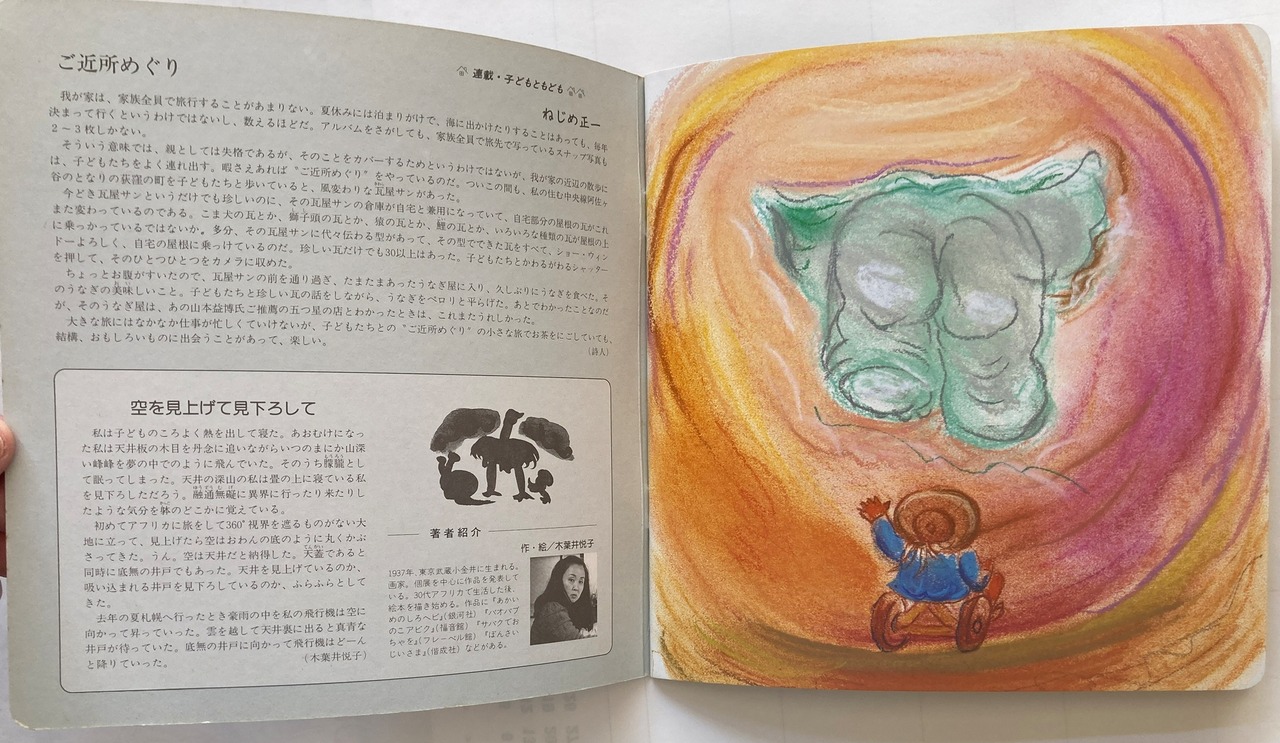 ご近所めぐり
連載・子どもともども
ねじめ正一
我が家は、家族全員で旅行することがあまりない。夏休みには泊まりがけで、海に出かけたりすることはあっても、毎年
決まって行くというわけではないし、数えるほどだ。アルバムをさがしても、家族全員で旅先で写っているスナップ写真も
2〜3枚しかない。
そういう意味では、親としては失格であるが、そのことをカバーするためというわけではないが、我が家の近辺の散歩に
は、子どもたちをよく連れ出す。暇さえあれば〝ご近所めぐり〟をやっているのだ。ついこの間も、私の住む中央線阿佐ヶ
谷のとなりの荻窪の町を子どもたちと歩いていると、風変わりな瓦屋サンがあった。
今どき瓦屋サンというだけでも珍しいのに、その瓦屋サンの倉庫が自宅と兼用になっていて、自宅部分の屋根の瓦がこれ
また変わっているのである。こま犬の瓦とか、獅子頭の瓦とか、猿の瓦とか、鯉の瓦とか、いろいろな種類の瓦が屋根の上
に乗っかっているではないか。多分、その瓦屋サンに代々伝わる型があって、その型でできた瓦をすべて、ショー・ウィン
ドーよろしく、自宅の屋根に乗っけているのだ。珍しい瓦だけでも30以上はあった。子どもたちとかわるがわるシャッター
を押して、そのひとつひとつをカメラに収めた。
ちょっとお腹がすいたので、瓦屋サンの前を通り過ぎ、たまたまあったうなぎ屋に入り、久しぶりにうなぎを食べた。そ
のうなぎの美味しいこと。子どもたちと珍しい瓦の話をしながら、うなぎをペロリと平らげた。あとでわかったことなのだ
が、そのうなぎ屋は、あの山本益博氏ご推薦の五つ星の店とわかったときは、これまたうれしかった。
大きな旅にはなかなか仕事が忙しくていけないが、子どもたちとの〝ご近所めぐり〟の小さな旅でお茶をにごしていても、
結構、おもしろいものに出会うことがあって、楽しい。
(詩人)
空を見上げて見下ろして
私は子どものころよく熱を出して寝た。あおむけになっ
た私は天井板の木目を丹念に追いながらいつのまにか山深
い峰峰を夢の中でのように飛んでいた。そのうち朦朧とし
て眠ってしまった。天井の深山の私は畳の上に寝ている私
を見下ろしただろう。融通無礙に異界に行ったり来たりし
たような気分を躰のどこかに覚えている。
初めてアフリカに旅をして360°視界を遮るものがない大
地に立って、見上げたら空はおわんの底のように丸くかぶ
さってきた。うん。空は天井だと納得した。天蓋であると
同時に底無の井戸でもあった。天井を見上げているのか、
吸い込まれる井戸を見下ろしているのか、ふらふらとして
きた。
去年の夏札幌へ行ったとき豪雨の中を私の飛行機は空に
向かって昇っていった。雲を越して天井裏に出ると真青な
井戸が待っていた。底無の井戸に向かって飛行機はどーん
と降りていった。
(木葉井悦子)
著者紹介
作・絵/木葉井悦子
1937年、東京武蔵小金井に生まれる。
画家。個展を中心に作品を発表して
いる。30代アフリカで生活した後、
絵本を描き始める。作品に『あかい
めのしろへビ』(銀河社)『バオバブ
のこアビク』(福音館)『サバクでお
ちゃを』(フレーベル館)『ぼんさい
じいさま』(偕成社)などがある。